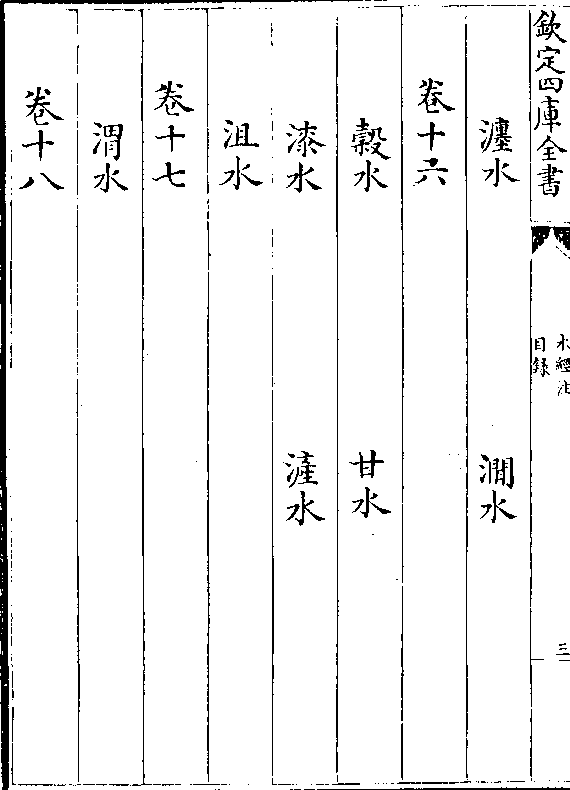 欽定四庫全書
水經注
目録
三
瀍水 澗水
卷十六
穀水 甘水
漆水 滻水
沮水
卷十七
渭水
卷十八